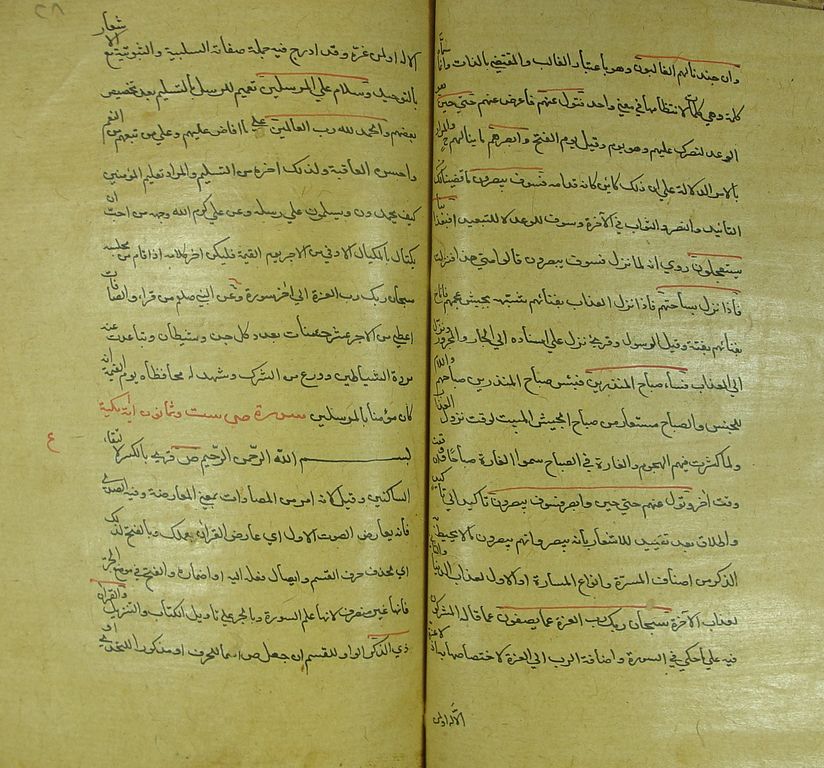 وان جندنا لهم الغالبون وهو باعتبار الغالب والمقضي بالذات وانما سماه
كلمة وهي كلمات لانتظامها في معنى واحد فتول عنهم فاعرض عنهم حتى حين هو
الموعد لنصرك عليهم وهو يوم بدر وقيل يوم الفتح وابصرهم ما ينالهم ح والمراد
بالامر الدلالة على ان ذلك كاين كانه قدامه فسوف يبصرون ما قضينا لك
التأييد والنصر والثواب في الآخرة وسوف للوعيد لا للتبعيد افبعذابنا
يستعجلون روي انه لما نزل فسوف يبصرون قالوا متى هذا فنزلت
فاذا نزل بساحتهم فاذا نزل العذاب بفنائهم شبهه بجيش هجمهم فاناخ
بفنائهم بغتة وقيل الرسول وقرئ نزل على اسناده الى الجار والمجرور ونزل
الى العذاب فساء صباح المنذرين فبئس صباح المنذرين صباحهم واللام
للجنس والصباح مستعار من صباح الجيش المبيت لوقت نزول العذاب
ولما كثرت فيهم الهجوم والغارة في الصباح سموا الغارة صباحا وان وقعت
وقت آخر وتول عنهم حتى حين وابصر فسوف يبصرون تأكيد الى تأكيد
واطلاق بعد تقييد للاشعار بأنه يبصر وانهم يبصرون ما لا يحيط به
الذكر من اصناف المسرة وانواع المساءة او الاول لعذاب الدنيا والثاني
لعذاب الآخرة سبحان ربك رب العزة عما يصفون عما قاله المشركون
فيه على ما حكي في السورة واضافة الرب الى العزة لاختصاصها به اذ لا عزة
الا له اولمن
الا له اولمن عزه وقد ادرج فيه جملة صفاته السلبية والثبوتية مع الاشعار
بالتوحيد وسلام على المرسلين تعميم للرسل بالتسليم بعد تخصيص
بعضهم والحمد لله رب العالمين على ما افاض عليهم وعلى من تبعهم من النعم
وحسن العاقبة ولذلك اخره من التسليم والمراد تعليم المؤمنين
كيف يحمدونه ويسلمون على رسله وعن علي كرم الله وجهه من احب ان
يكتال بالمكيال الاوفى من الاجر يوم القيمة فليكن آخر كلامه اذا قام من مجلسه
سبحان ربك رب العزة الى اخر سورة وعن النبي صلعم من قراء والصافات
اعطي من الاجر عشر حسنات بعدد كل جن وشيطان وتباعدت عنه
مردة الشياطين وبرئ من الشرك وشهد له حافظاه يوم القيمة انه
كان مؤمنا بالمرسلين سورة ص ست وثمانون آية مكية
بسم الله الرحمن الرحيم ص قرئ بالكسر لالتقاء
الساكنين وقيل لانه امر من المصادات بمعنى المعارضة ومنه الصدى
فانه يعارض الصوت الاول اي عارض القرآن بعملك وبالفتح لذلك
اي بحذف حرف القسم وايصال فعله اليه او اضماره والفتح في موضع الجر
فانها غير منصرف لانها علم السورة وبالجر على تاويل الكتاب والقران
ذي الذكر الواو للقسم ان جعل ص اسما للحرف او مذكورا للتحدي او
ع